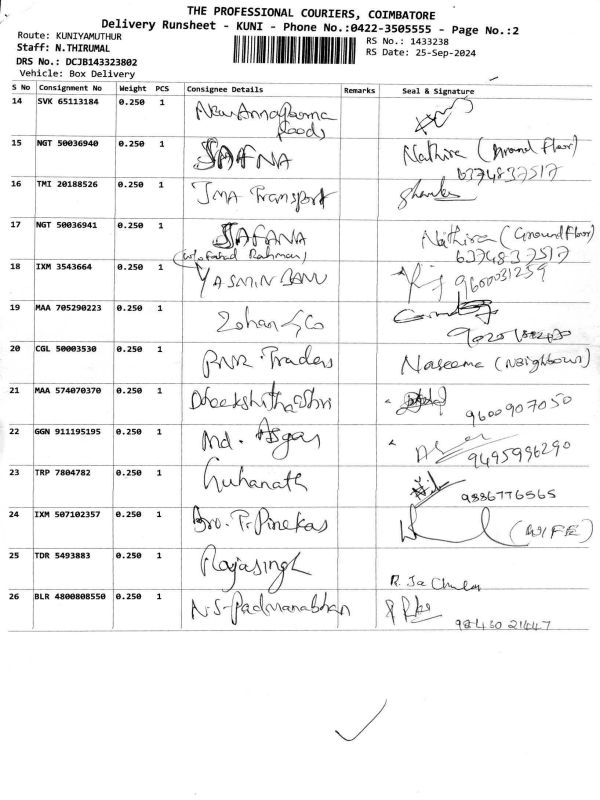 THE PROFESSIONAL COURIERS, COIMBATORE
Delivery Runsheet - KUNI - Phone No.:0422-3505555 - Page No.:2
Route: KUNIYAMUTHUR
RS No.: 1433238
Staff: N.THIRUMAL
RS Date: 25-Sep-2024
DRS No.: DCJB143323802
Vehicle: Box Delivery
S No Consignment No Weight PCS Consignee Details Remarks Seal & Signature
14 SVK 65113184 0.250 1 New Annapoorna
foods
15 NGT 50036940 0.250 1 SAFNA Nathira (Ground Floor)
6374837517
16 TMI 20188526 0.250 1 JMA Transport
17 NGT 50036941 0.250 1 SAFANA Nathira (Ground Floor)
(w/o Fahad Rahman) 6374837517
18 IXM 3543664 0.250 1 YASMIN BANU 9600031259
19 MAA 705290223 0.250 1 Zohan & Co
20 CGL 50003530 0.250 1 PNR Traders Naseema (Neighbour)
21 MAA 574070370 0.250 1 Dheekshitha Shri 9600907050
22 GGN 911195195 0.250 1 Md. Asgar 9495996290
23 TRP 7804782 0.250 1 Guhanath 9886776565
24 IXM 507102357 0.250 1 Bro. P. Pinekas (WIFE)
25 TDR 5493883 0.250 1 Rajasingh
26 BLR 4800808550 0.250 1 N.S-Padmanabhan